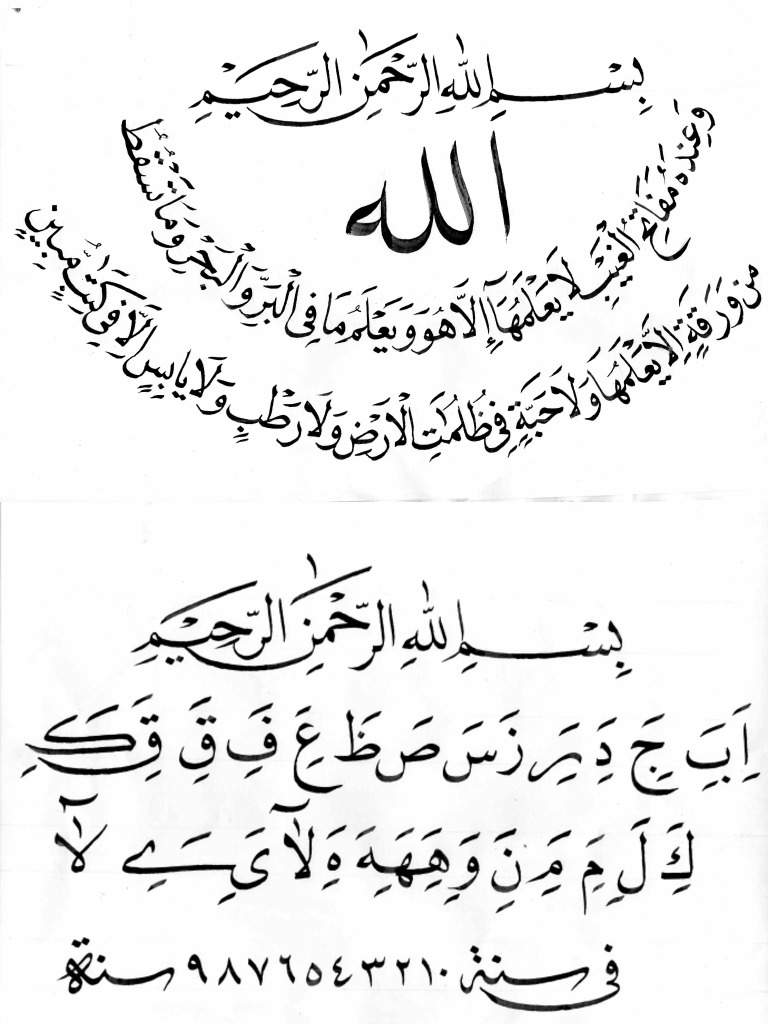 بِسْمِ اللهِ الرَّحْمٰنِ الرَّحِيْمِ
الله
وَعِنْدَهُ مَفَاتِحُ الْغَيْبِ لَا يَعْلَمُهَآ إِلَّا هُوَ وَيَعْلَمُ مَا فِى الْبَرِّ وَالْبَحْرِ وَمَا تَسْقُطُ
مِنْ وَرَقَةٍ إِلَّا يَعْلَمُهَا وَلَا حَبَّةٍ فِى ظُلُمٰتِ الْاَرْضِ وَلَا رَطْبٍ وَلَا يَابِسٍ إِلَّا فِى كِتٰبٍ مُّبِيْنٍ
بِسْمِ اللهِ الرَّحْمٰنِ الرَّحِيْمِ
اَ بَ جَ دَ رَ زَ سَ صَ ظَ عَ فَ قَ قَ كَ
كَ لَ مَ مَ نَ وَ هَ هَ هَ ةَ لآ ىَ ےَ لآ
فى سنة ٠ ١ ٢ ٣ ٤ ٥ ٦ ٧ ٨ ٩ سنة